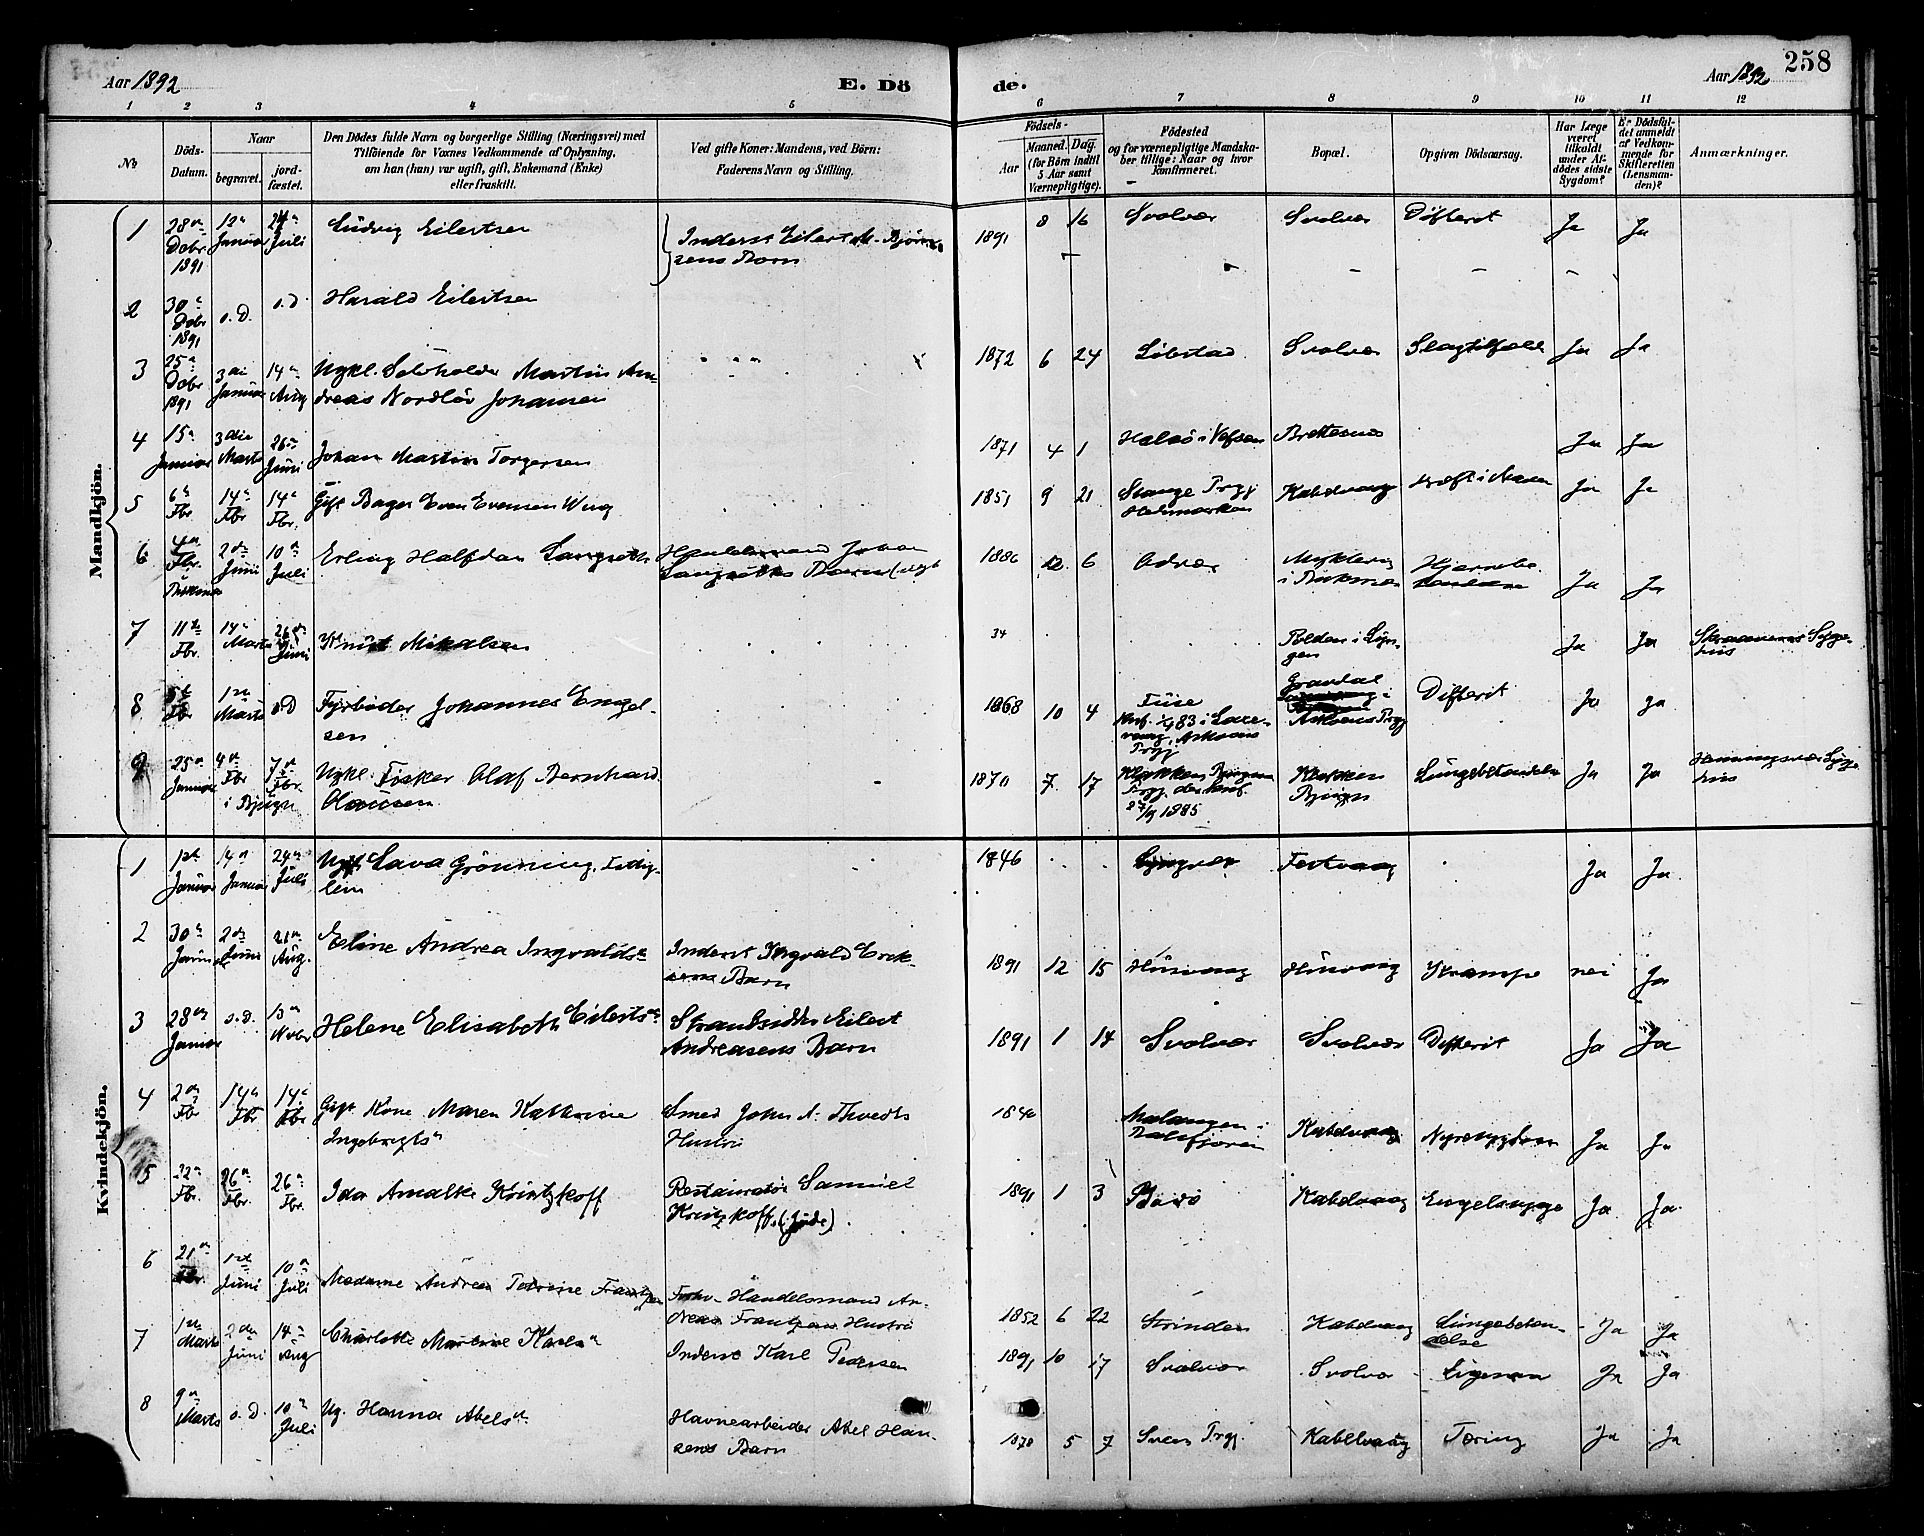 Aar 1892
E. Dö
de.
Aar 1892
258
1 2 3 4 5 6 7 8 9 10 11 12
No
Döds-
Datum.
Naar
begravet.
jord-
fæstet.
Den Dödes fulde Navn og borgerlige Stilling (Næringsvei) med
Tilföiende for Voxnes Vedkommende af Oplysning,
om han (hun) var ugift, gift, Enkemand (Enke)
eller fraskilt.
Ved gifte Koner: Mandens, ved Börn:
Faderens Navn og Stilling.
Födsels-
Aar
Maaned.
Dag.
(for Börn indtil
5 Aar samt
Værnepligtige).
Födested
og for værnepligtige Mandska-
ber tillige: Naar og hvor
konfirmeret.
Bopæl.
Opgiven Dödsaarsag.
Har Læge
været
tilkaldt
under Af-
dödes sidste
Sygdom?
Er Dödsfal-
det anmeldt
af Vedkom-
mende for
Skifteretten
(Lensman-
den)?
Anmærkninger.
Mandkjön.
1 28de Dcbr 1891 12te Januar 24de Juli Ludvig Eilertsen Inderst Eilert M. Bjørn-
sens Barn 1891 8 16 Svolvær Svolvær Difterit Ja Ja
2 30te Dcbr 1891 s.D. s.D Harald Eilertsen
3 25de Dcbr 1891 3die Januar 14de Aug Martin An-
dreas Nordløv Johansen 1872 6 24 Løbstad Svolvær Slagtilfælde Ja Ja
4 15de Januar 3die Marts 26de Juni Johan Martin Torgersen 1871 4 1 Halsø i Vefsen Brettesnæs Ja Ja
5 6te Fbr 14de Fbr 14de Fbr. Gift Bager Even Evensen 1851 9 21 Stange Prgj
Hedemarken Kabelvaag Kræft i Maven Ja Ja
6 4de Fbr. 2den Juni 10de Juli Erling Halfdan Handelsmand Johan
Barn 1886 12 6 Hjernebe-
tændelse Ja Ja
7 11te Fbr. 14de Marts 26de Juni Knut Mikalsen 34 Polden i Lyn-
gen Ja Ja Skraavens Syge-
hus
8 5te Fbr 1ste Marts s.D Fyrbøder Johannes Engel-
sen 1868 10 4 Fuse
Askøens
Prgj Gravdal
Askøens Prgj Difterit Ja Ja
9 25de Januar 4de Fbr i Bjugn 7de Fbr. Ugkl. Fisker Olaf Bernhard
Olausen 1870 7 17 Klakken Bjugn
Prgj. der konf.
1885 Klakken
Bjugn Lungebetændelse Ja Ja Henningsvær Syge-
hus
Kvindekjön.
1 1ste Januar 14de Januar 24de Juli Lava Grønning, Fattig-
lem 1846 Festvaag Ja Ja
2 30te Januar 2den Juni 21de Aug. Eline Andrea Ingvaldsn Inderst Ingvald Erik-
sens Barn 1891 12 15 Husvaag Husvaag Krampe nei Ja
3 28de Januar s.D. 13de Nvbr Helene Elisabeth Eilertsn Strandsidder Eilert
Andreasens Barn 1891 1 14 Svolvær Svolvær Difterit Ja Ja
4 2den Fbr 14de Fbr 14de Fbr Gift Kone Maren Kathrine
Ingebrigtsn Smed John A. Thvedts
Hustru 1840 Malangen i
Balsfjoren Kabelvaag Nyresygdom Ja Ja
5 22de Fbr. 26de Fbr. 26de Fbr. Ida Amalie Krintzkoff Restauratør Samuel
Krintzkoffs (Jøde). 1891 1 3 Bodø Kabelvaag Engelsksyge Ja Ja
6 21de Fbr. 1ste Juni 10de Juli Madame Andrea Petrine Frantzen Handelsmand An-
dreas Frantzens Hustru 1852 6 22 Strinden Kabelvaag Lungebetæn-
delse Ja Ja
7 1ste Marts 2den Juni 14de Aug Charlotte Martine Karlsn Inderst Karl Pedersen 1891 10 17 Svolvær Svolvær Ja Ja
8 9de Marts s.D. 10de Juli Ug. Hanna Abelsn Havnearbeider Abel Han-
sens Barn 1878 5 7 Prgj. Kabelvaag Tæring Ja Ja